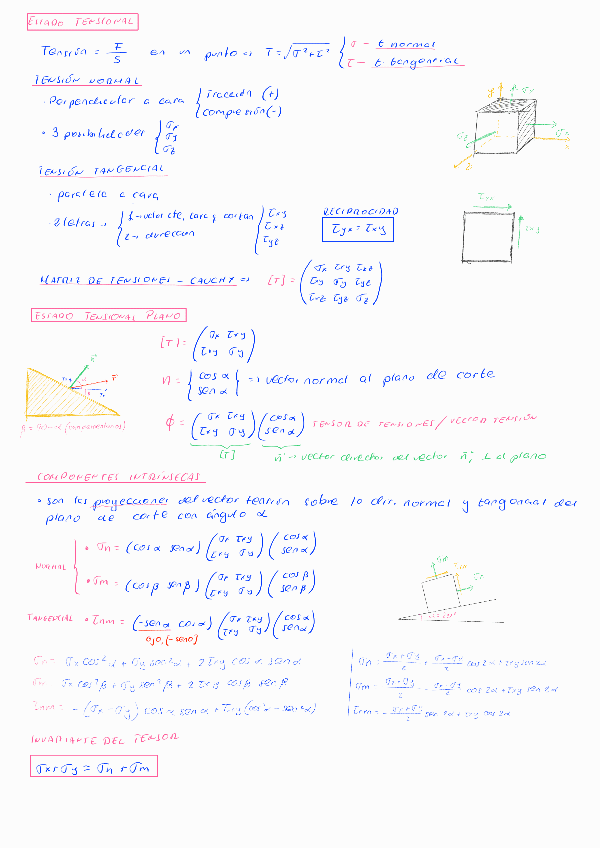 ESTADO TENSIONAL
TENSIÓN = F/S en un punto ⇒ T = √(σ² + τ²) { σ – t. normal
τ – t. tangencial
TENSIÓN NORMAL
· Perpendicular a cara { Tracción (+)
compresión (-)
• 3 posibilidades { σx
σy
σz
TENSIÓN TANGENCIAL
· paralela a cara
· 2 letras → { 1 → valor cte, cara y cortan
2 → dirección
{ τxy
τxz
τyz
RECIPROCIDAD
τyx = τxy
τyx
τxy
MATRIZ DE TENSIONES – CAUCHY ⇒ [T] = ( σx τxy τxz
τxy σy τyz
τxz τyz σz )
ESTADO TENSIONAL PLANO
[T] = ( σx τxy
τxy σy )
n = { cos α
sen α } ⇒ vector normal al plano de corte
ϕ = ( σx τxy
τxy σy ) ( cos α
sen α ) TENSOR DE TENSIONES / VECTOR TENSIÓN
[T] n⃗ → vector director del vector n⃗, ⊥ al plano
COMPONENTES INTRÍNSECAS
• son las proyecciones del vector tensión sobre la dir. normal y tangencial del
plano de corte con ángulo α
NORMAL
• σn = (cos α sen α) ( σx τxy
τxy σy ) ( cos α
sen α )
• σm = (cos β sen β) ( σx τxy
τxy σy ) ( cos β
sen β )
TANGENCIAL • τnm = (-sen α cos α) ( σx τxy
τxy σy ) ( cos α
sen α )
σn = σx cos² α + σy sen² α + 2 τxy cos α sen α
σm = σx cos² β + σy sen² β + 2 τxy cos β sen β
τnm = - (σx - σy) cos α sen α + τxy (cos² α - sen² α)
σn = (σx + σy)/2 + (σx - σy)/2 cos 2α + τxy sen 2α
INVARIANTE DEL TENSOR
σx + σy = σn + σm